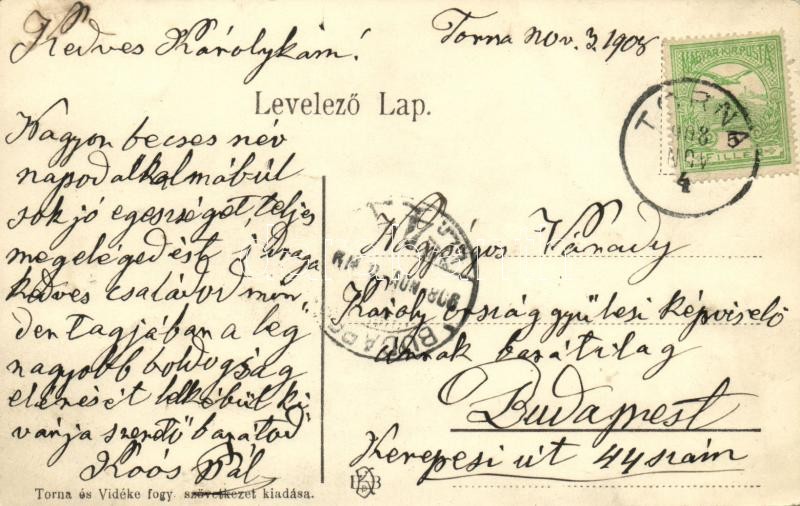 Kedves Károlykám!
Torna nov. 3. 1908
MAGYAR KIR. POSTA
TORNA
908
NOV
4
5
FILLÉR
Levelező Lap.
Nagyon becses név
napod alkalmából
sok jó egességet, teljes
megelégedést, s draga
kedves családod min,
den tagjában a leg
nagyobb boldogság
elérését lelkéből ki,
vánja szerető barátod
Koós Pál
Nagyságos Várady
Károly országgyülesi képviselő
urnak barátilag
Budapest
Kerepesi út 44 szám
BUDAPEST
908 NOV
Torna és Vidéke fogy. szövetkezet kiadása.